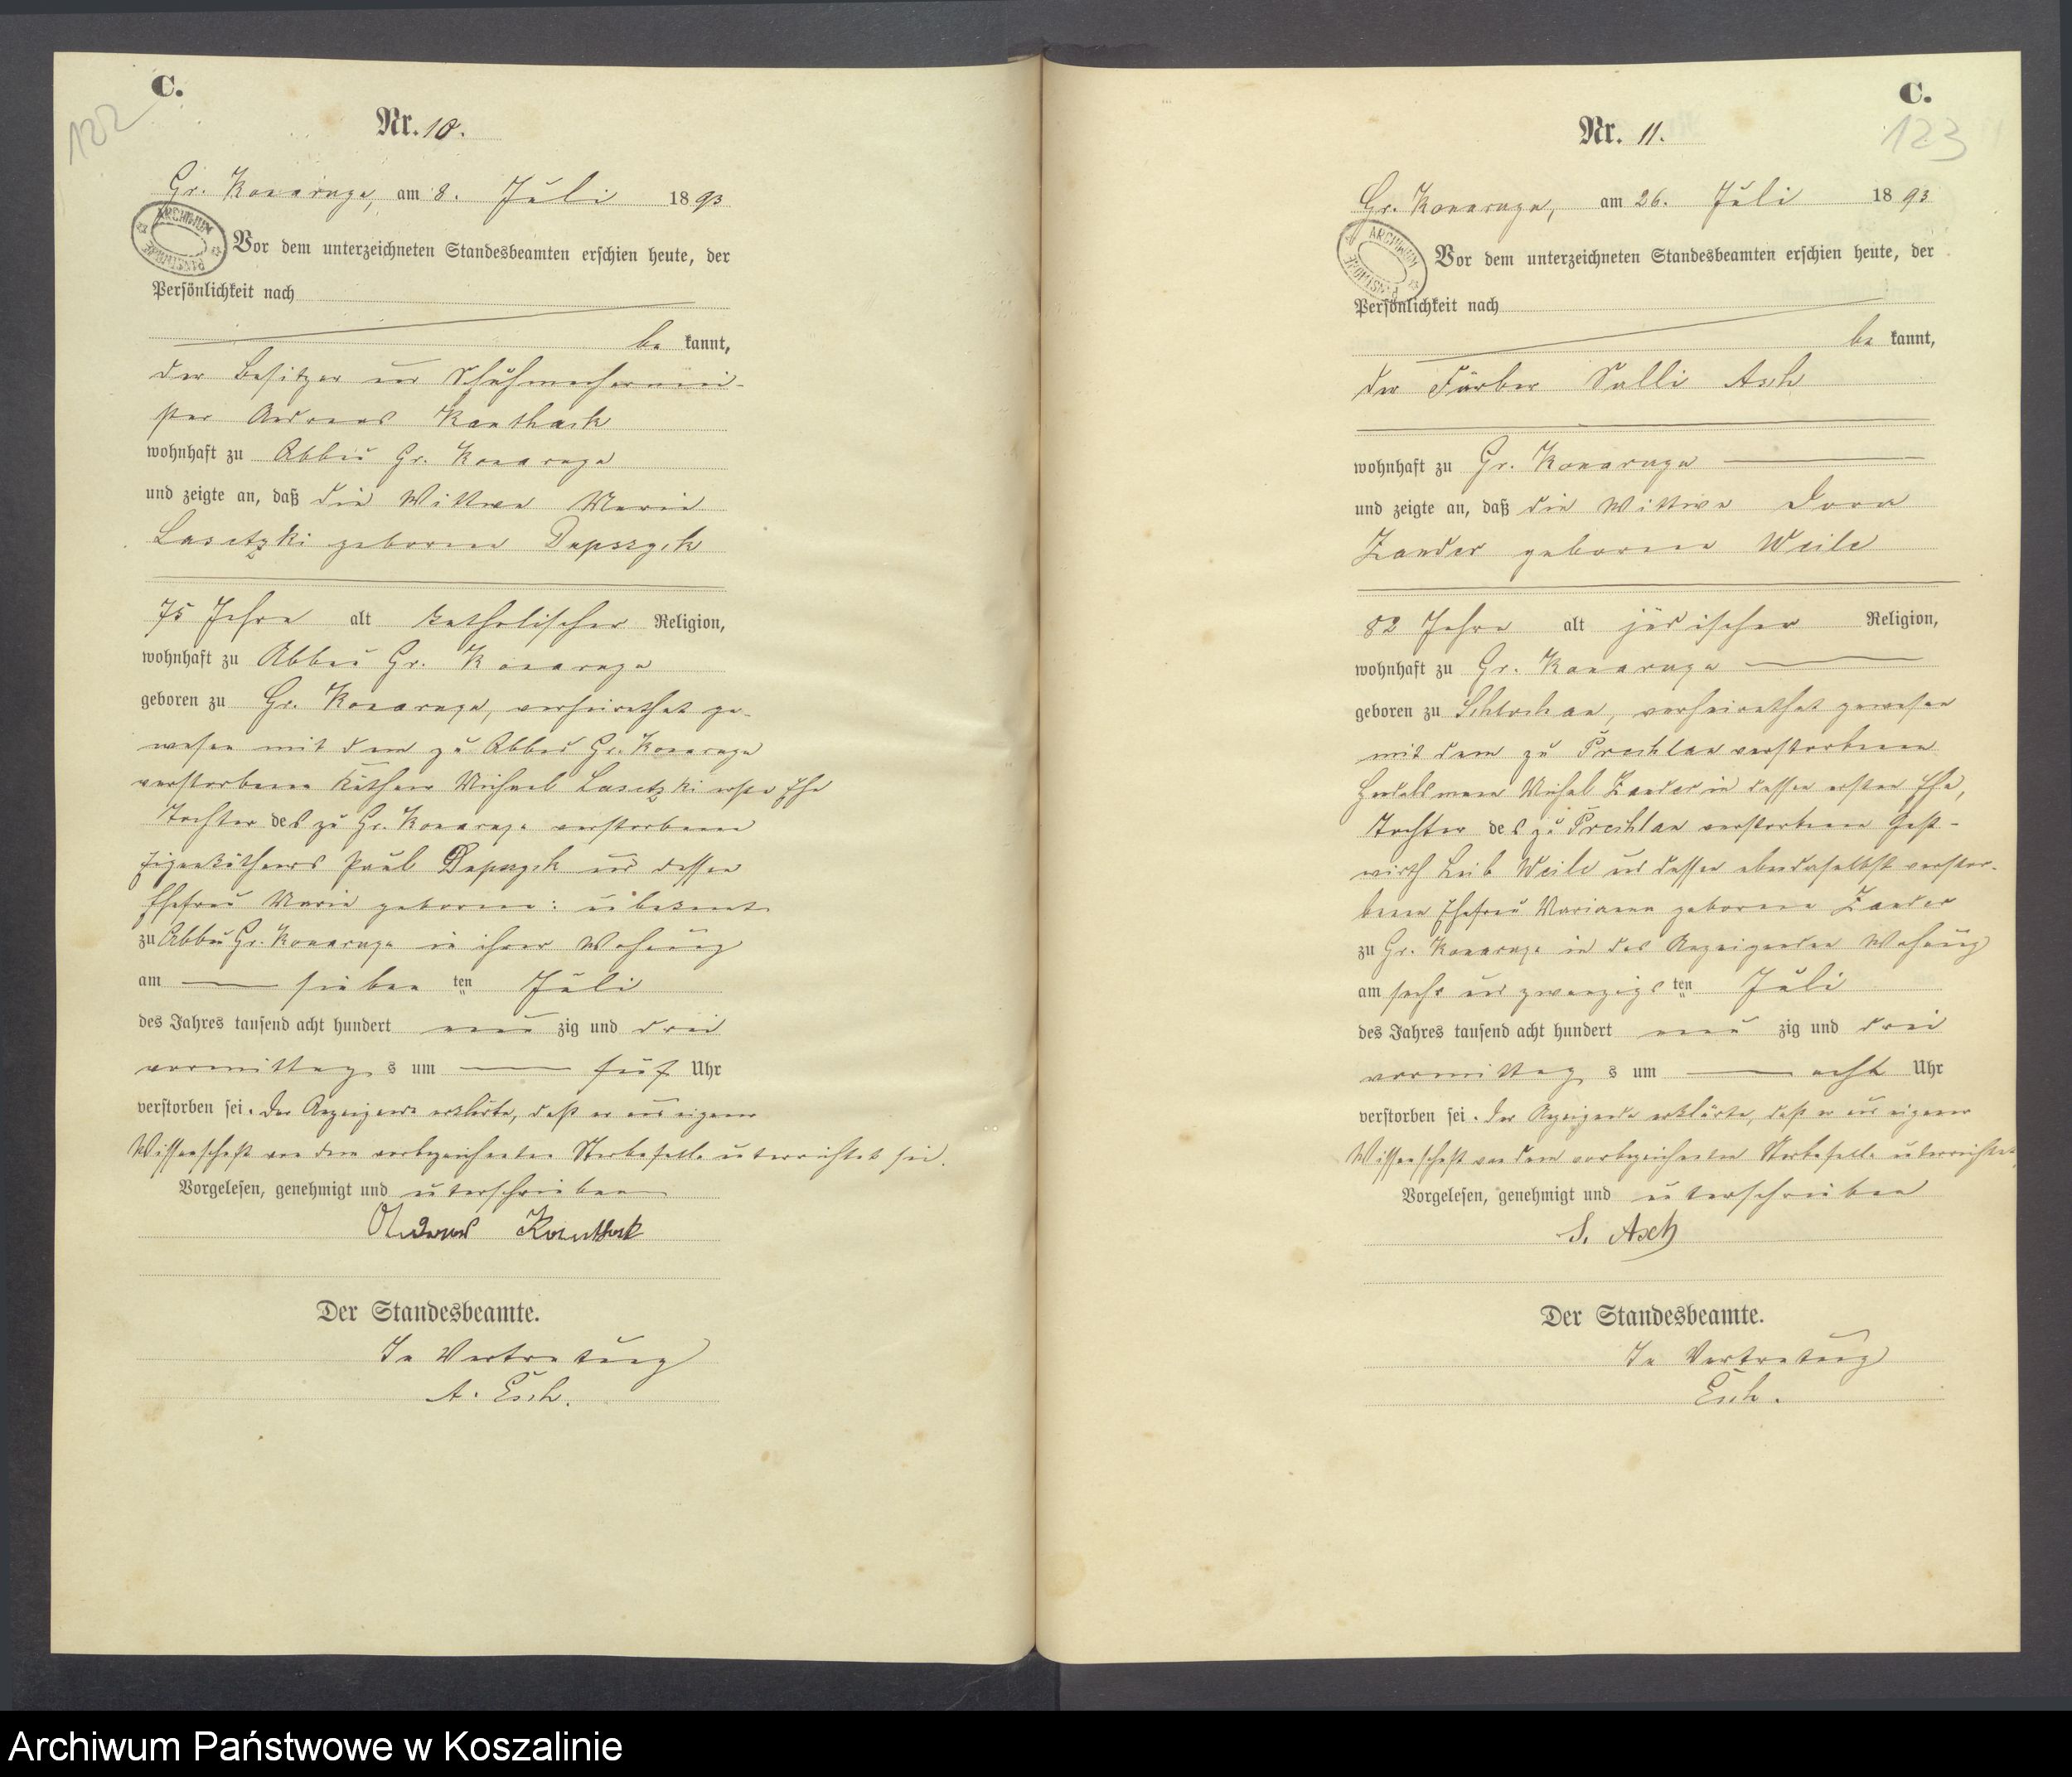 C.
122
Nr. 10.
Gr. Konarzyn, am 8. Juli 1893
ARCHIWUM PAŃSTWOWE
Vor dem unterzeichneten Standesbeamten erschien heute, der
Persönlichkeit nach
be kannt,
der Besitzer und Schuhmachermei-
ster Andreas Kanthack
wohnhaft zu Abbau Gr. Konarzyn
und zeigte an, daß die Wittwe Marie
Lasetzki geborene
75 Jahre alt katholischer Religion,
wohnhaft zu Abbau Gr. Konarzyn
geboren zu Gr. Konarzyn, verheirathet ge-
wesen mit dem zu Abbau Gr. Konarzyn
verstorbenen Käthner Michael Lasetzki erste Ehe
Tochter des zu Gr. Konarzyn verstorbenen
Eigenkäthners Paul und dessen
Ehefrau Marie geborene: unbekannt
zu Abbau Gr. Konarzyn in ihrer Wohnung
am sieben ten Juli
des Jahres tausend acht hundert neun zig und drei
vormittag s um fünf Uhr
verstorben sei. Der Anzeigende erklärte, daß er aus eigener
Wissenschaft von dem vorbezeichneten Sterbefalle unterrichtet sei.
Vorgelesen, genehmigt und unterschrieben
Andreas Kanthack
Der Standesbeamte.
In Vertretung
A. Esch.
C.
123
Nr. 11.
Gr. Konarzyn, am 26. Juli 1893
ARCHIWUM PAŃSTWOWE
Vor dem unterzeichneten Standesbeamten erschien heute, der
Persönlichkeit nach
be kannt,
der Färber Salli Asch
wohnhaft zu Gr. Konarzyn
und zeigte an, daß die Wittwe Dora
Zander geborene Weile
82 Jahre alt jüdischer Religion,
wohnhaft zu Gr. Konarzyn
geboren zu Schlochau, verheirathet gewesen
mit dem zu Prechlau verstorbenen
Handelsmann Michel Zander in dessen ersten Ehe,
Tochter des zu Prechlau verstorbenen Gast-
wirth Leib Weile und dessen ebendaselbst verstor-
benen Ehefrau Mariann geborene Zander
zu Gr. Konarzyn in des Anzeigenden Wohnung
am sechs und zwanzigs ten Juli
des Jahres tausend acht hundert neun zig und drei
vormittag s um acht Uhr
verstorben sei. Der Anzeigende erklärte, daß er aus eigener
Wissenschaft von dem vorbezeichneten Sterbefalle unterrichtet
Vorgelesen, genehmigt und unterschrieben
S. Asch
Der Standesbeamte.
In Vertretung
Esch.
Archiwum Państwowe w Koszalinie